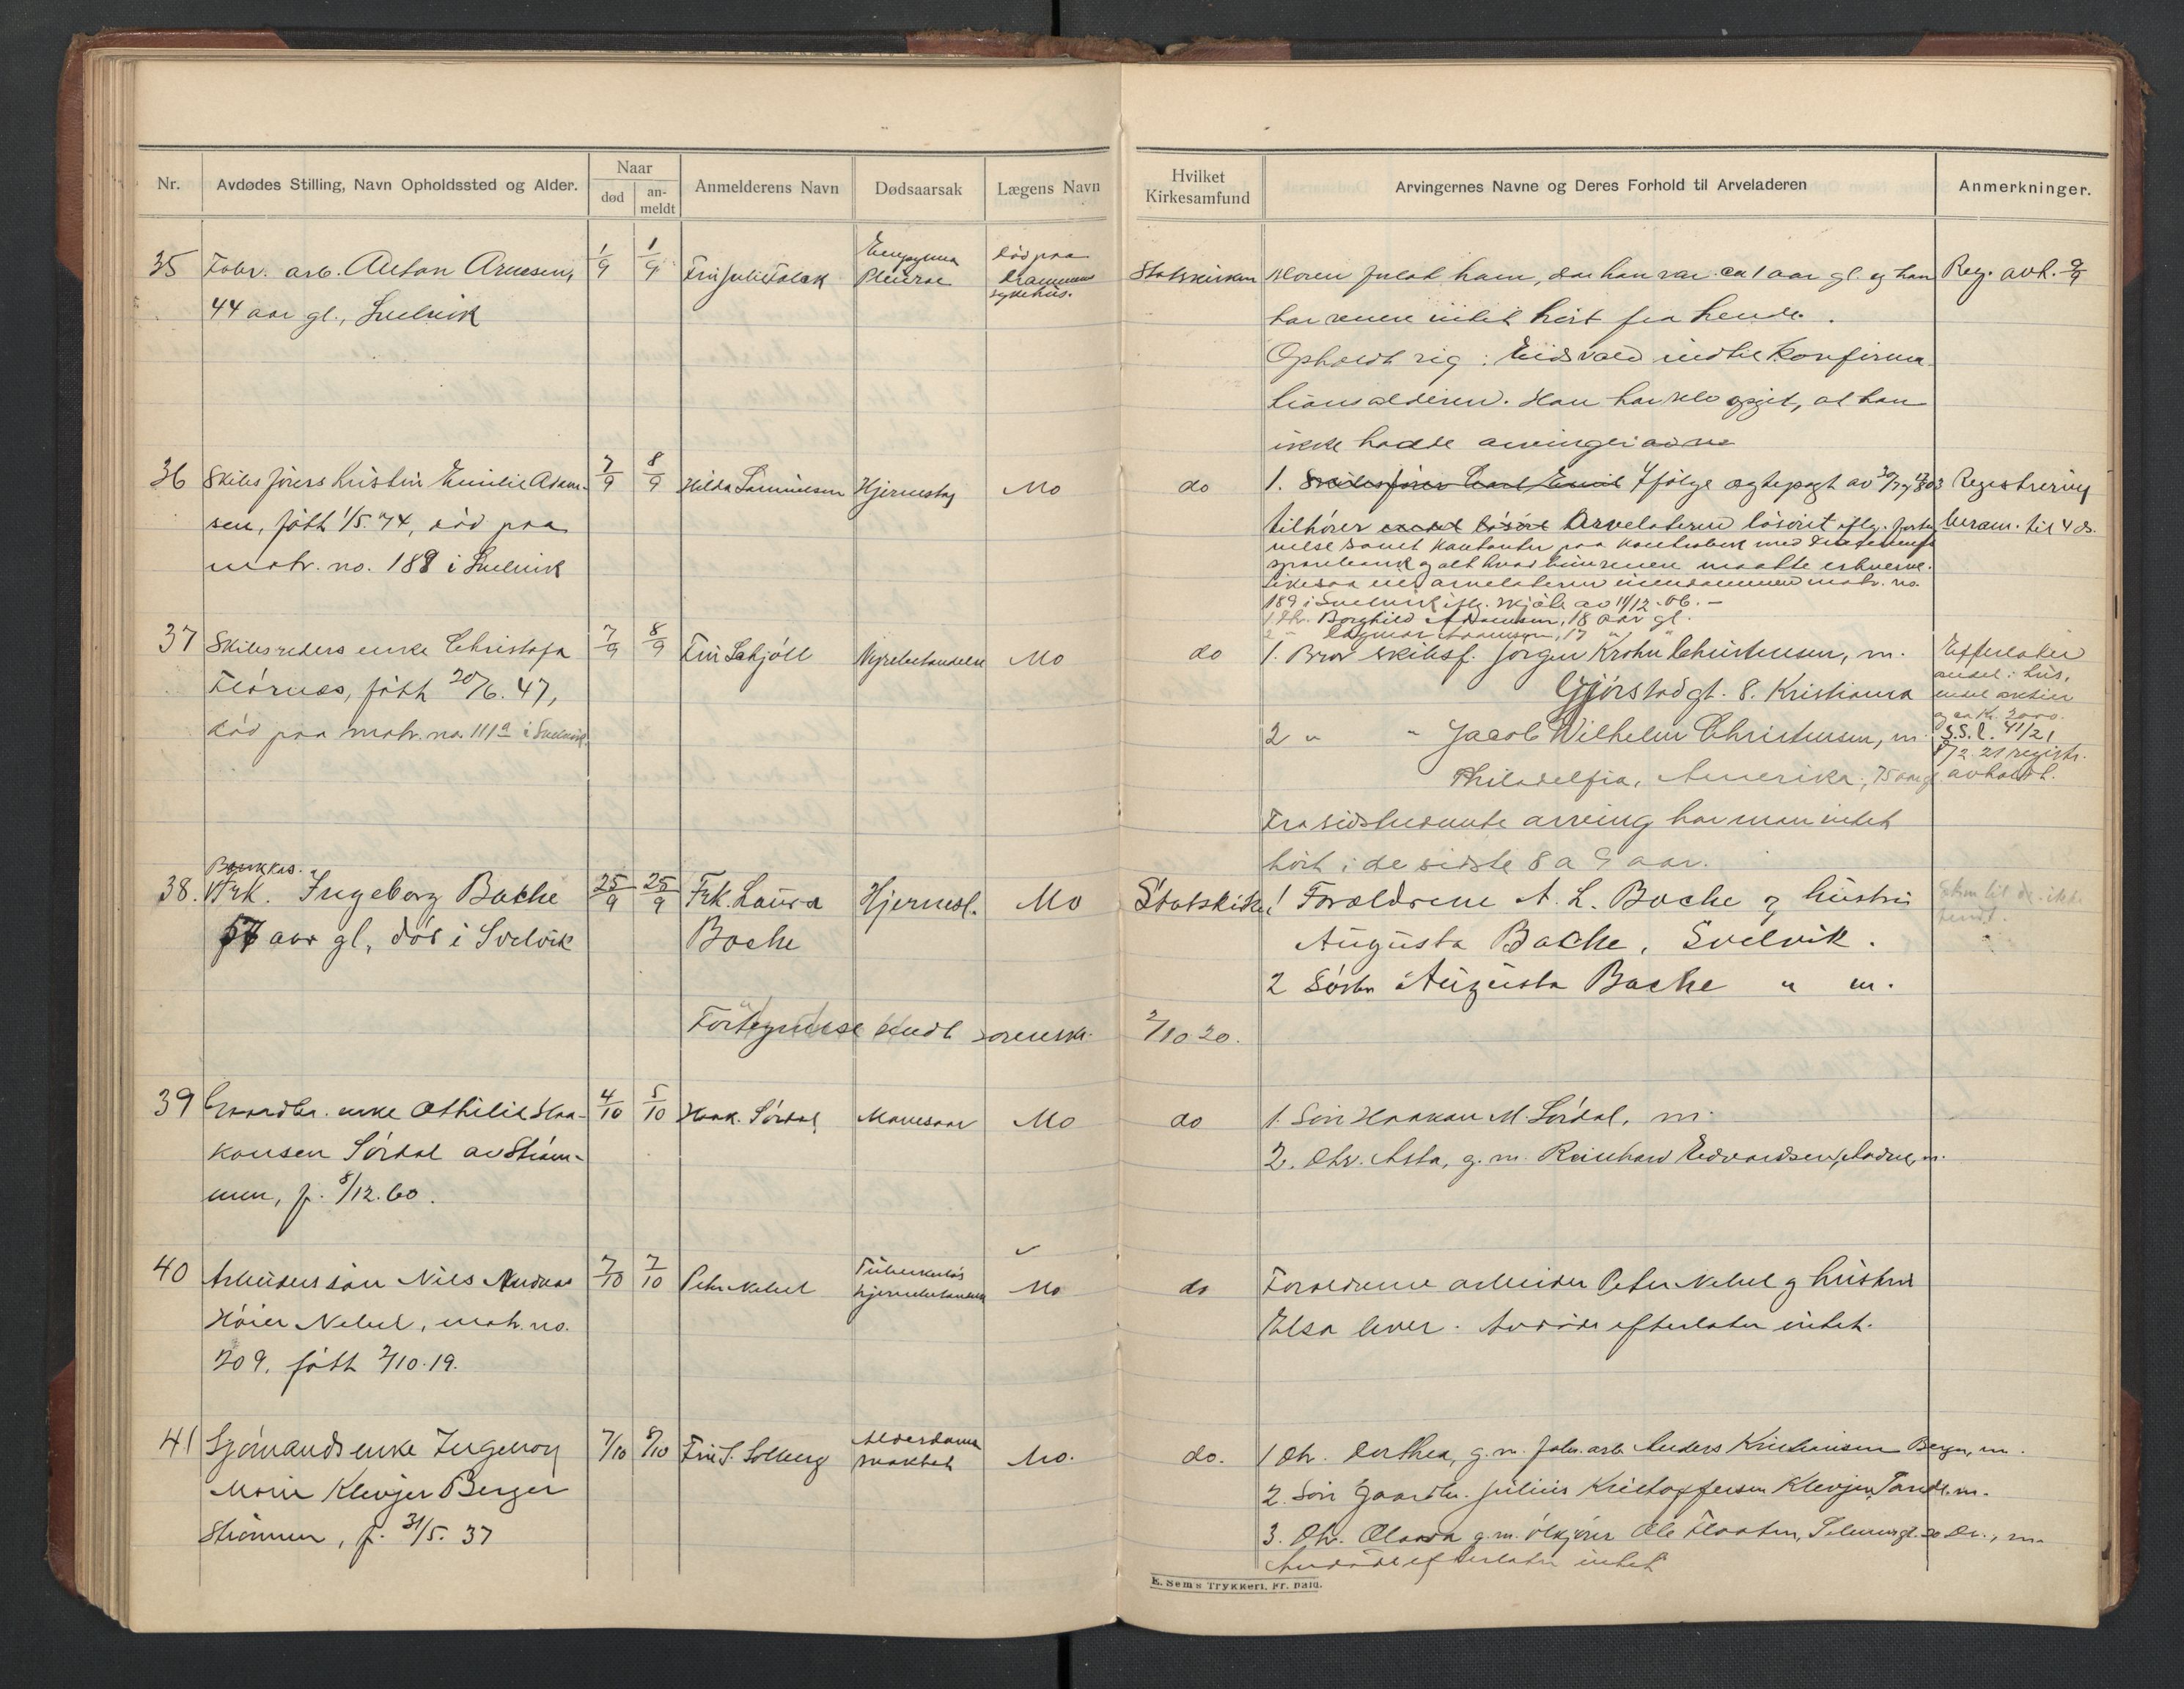 Nr.
Avdødes Stilling, Navn Opholdssted og Alder.
Naar
død
an-
meldt
Anmelderens Navn
Dødsaarsak
Lægens Navn
Hvilket
Kirkesamfund
Arvingernes Navne og Deres Forhold til Arveladeren
Anmerkninger.
35 Fabr. arb. Anton Arnesen,
44 aar gl., Svelvik
1/9 1/9
Empyema
Pleurae
død paa
Drammens
sykehus.
Statskirken
Moren forlod ham, da han var ca 1 aar gl. og han
har senere intet hørt fra hende.
Opholdt sig i Eidsvold indtil konfirma-
tionsalderen. Han har selv opgit, at han
ikke hadde arvinger
Reg. avh. 9/9
36 Skibsførers hustru Emilie Adam-
sen, født 1/5. 74, død paa
matr. no. 188 i Svelvik
7/9 8/9
Hilda Samuelsen
Hjerneslag
Mo
do
1. Skibsfører Carl Emil Ifølge ægtepagt av
tilhører arvelateren løsøret iflg. forteg-
nelse samt kontanter paa kontrabok med
sparebank og alt hvad hun senere maatte erhverve.
Likesaa eier arvelateren eiendommen matr. no.
189 i Svelvik iflg. skjøte av 11/12-06.
1 Dtr. Borghild Adamsen, 18 aar gl.
2 " Dagmar Adamsen, 17 " "
Registrering
beram. til 4 ds.
37 Skibsreders enke Christofa
Flørnes, født 20/6. 47,
død paa matr. no. 111a i Svelvik.
7/9 8/9
Fru Schjøll
Nyrebetændelse
Mo
do
1. Bror skibsf. Jørgen Krohn Christensen, m.
Gjørstadgt. 8. Kristiania
2 " " Jacob Wilhelm Christensen, m.
Philadelfia, Amerika, 75 aar gl.
Fra sidstnevnte arving har man intet
hørt i de sidste 8 a 9 aar.
Efterlater
andel i hus,
endel aktier
og ca Kr. 2000.
S.S.l. 41/21
registr.
avholdt.
38. Frk. Ingeborg Bache
57 aar gl, død i Svelvik
25/9 25/9
Frk. Laura
Bache
Hjernesl.
Mo
Statskirken
1 Forældrene A. L. Bache og hustru
Augusta Bache, Svelvik.
2 Søster Augusta Bache " m.
Fortegnelse sendt sorenskr. 2/10 20.
39 Gaardbr. enke Othilie Haa-
konsen Sørdal av Strøm-
men, f. 8/12. 60.
4/10 5/10
Haak. Sørdal
Mavesaar
Mo
do
1. Søn Haakon M. Sørdal, m.
2. Dtr. Asta, g. m. Reinhard Edvardsen,
40 Arbeiders søn Nils Andreas
Høier Nebel, matr. no.
209, født 2/10. 19.
7/10 7/10
Peter Nebel
Tuberkuløs
hjernebetændelse
Mo
do
Forældrene arbeider Peter Nebel og hustru
Elsa lever. Avdøde efterlater intet.
41 Sjømands enke Ingeborg
Marie Klevjer Berger
Strømmen, f. 31/5. 37
7/10 8/10
Fru S. Solberg
Alderdoms
svakhet
Mo.
do.
1 Dtr. Dorthea, g. m. fabr. arb. Anders Kristiansen Berger, m.
2. Søn Gaardbr. Julius Kristoffersen Klevjer, m.
3. Dtr. Olava g. m. ølkjører Ole Flaaten,
Avdøde efterlater intet
E. Sem's Trykkeri, Fr. hald.